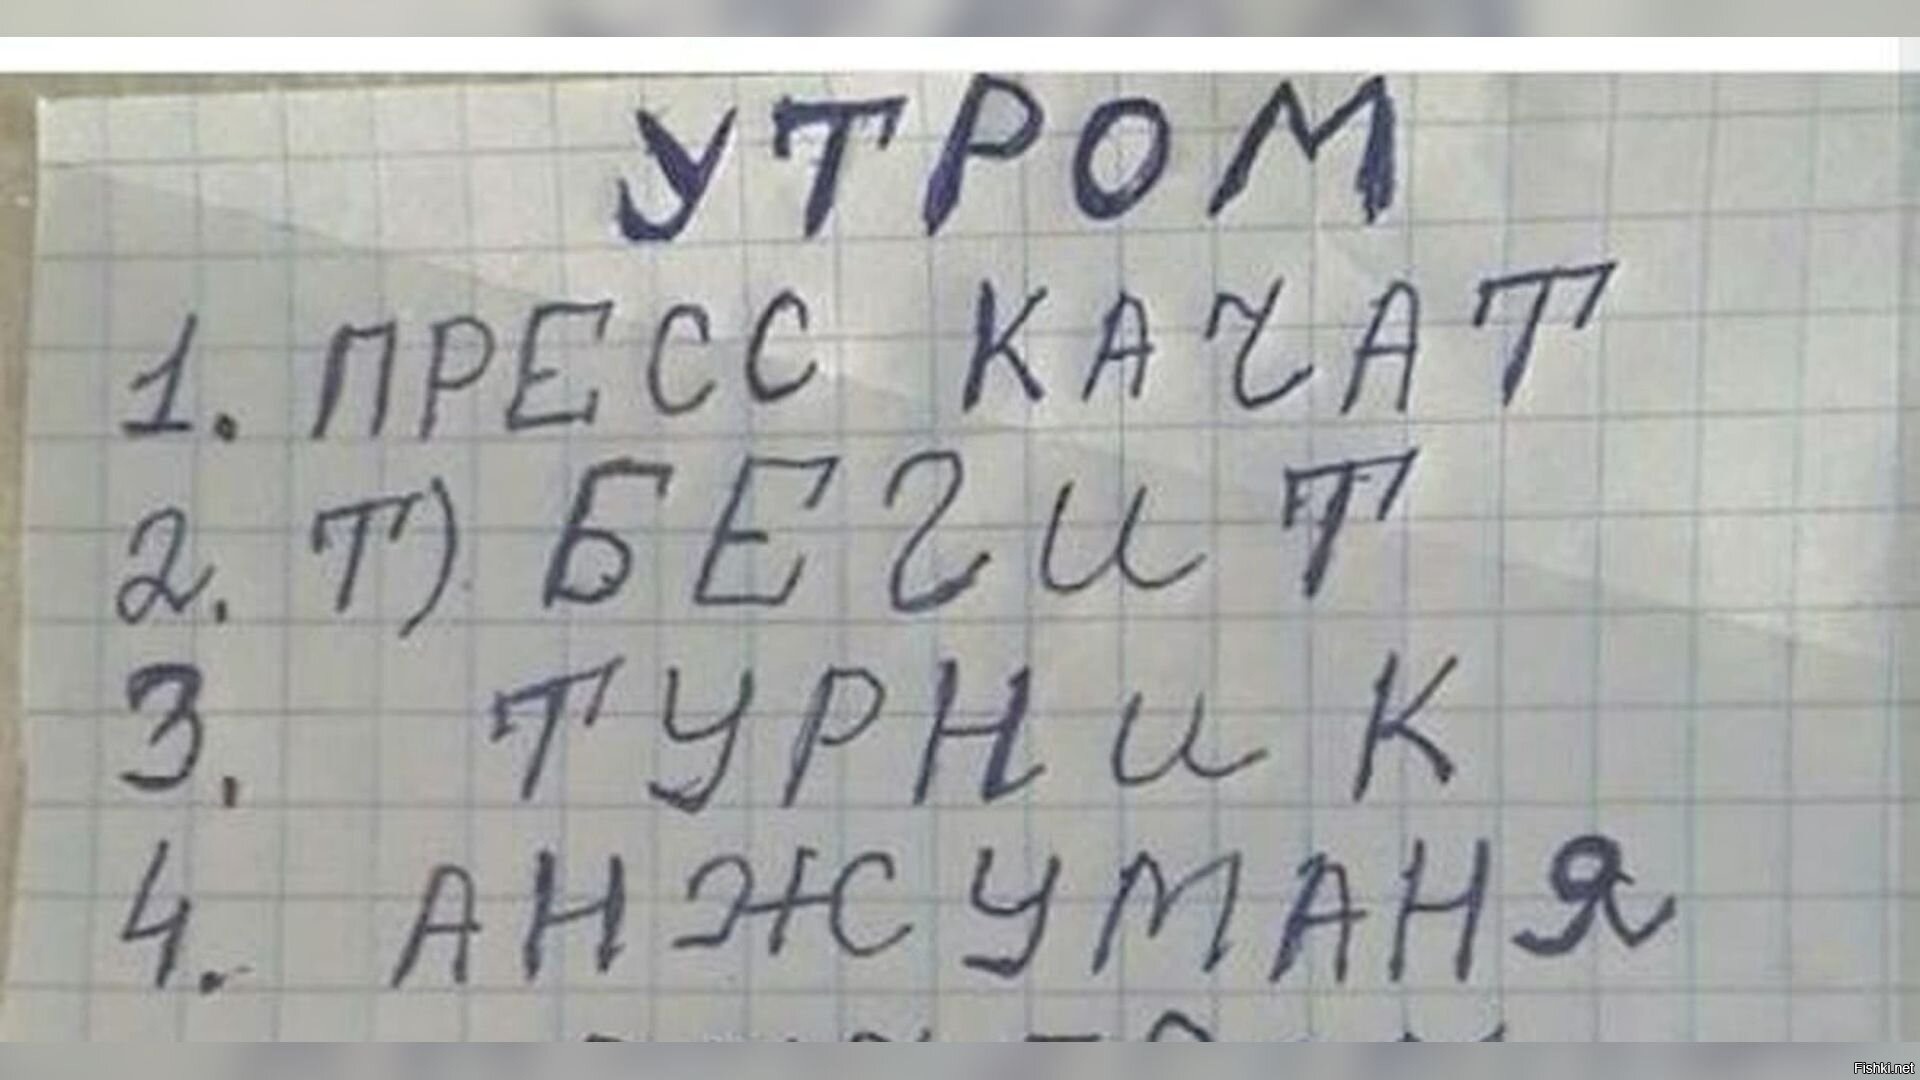 УТРОМ
1. ПРЕСС КАЧАТ
2. Т) БЕГИТ
3. ТУРНИК
4. АНЖУМАНЯ
Fishki.net